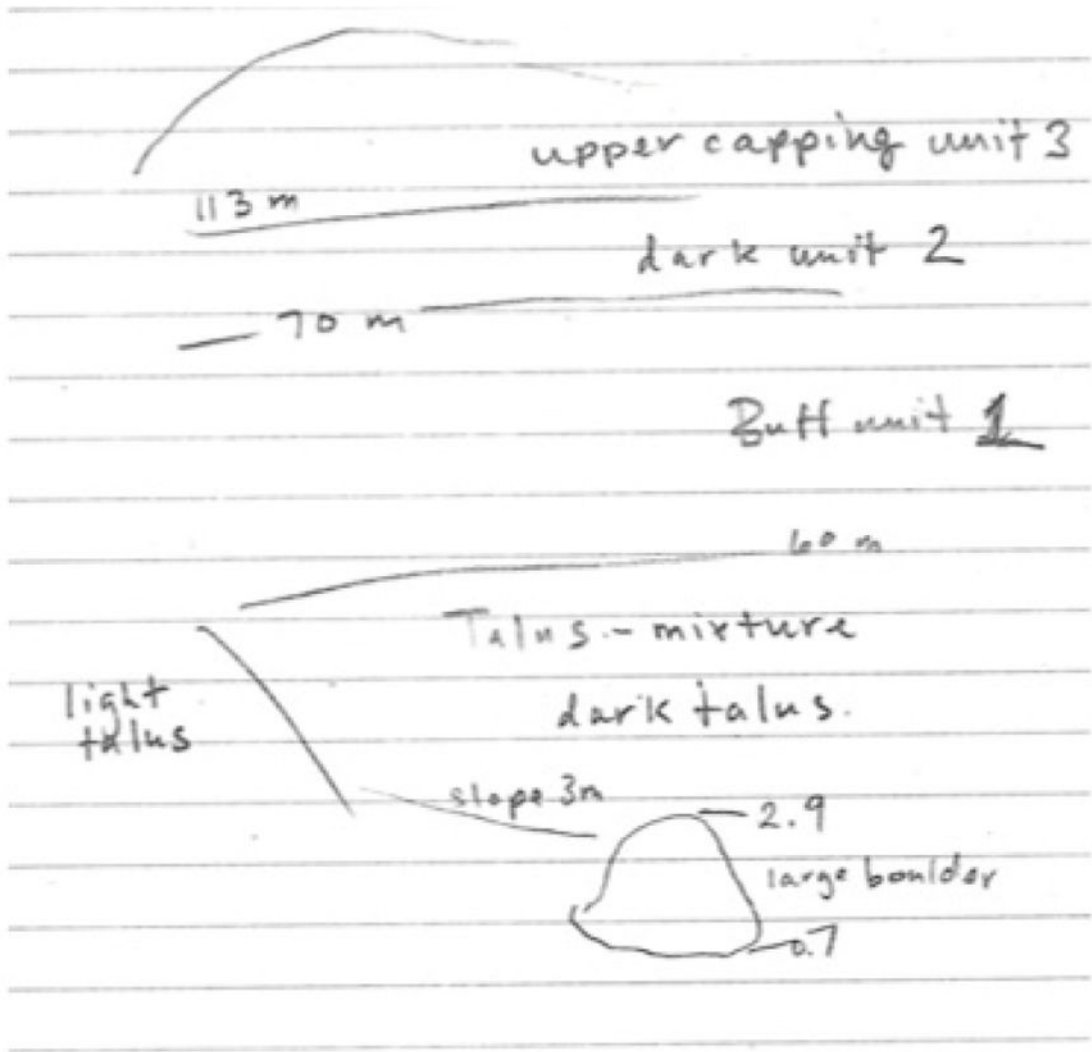 upper capping unit 3
113 m
dark unit 2
70 m
Buff unit 1
60 m
Talus - mixture
light
talus
dark talus.
slope 3m
2.9
large boulder
0.7